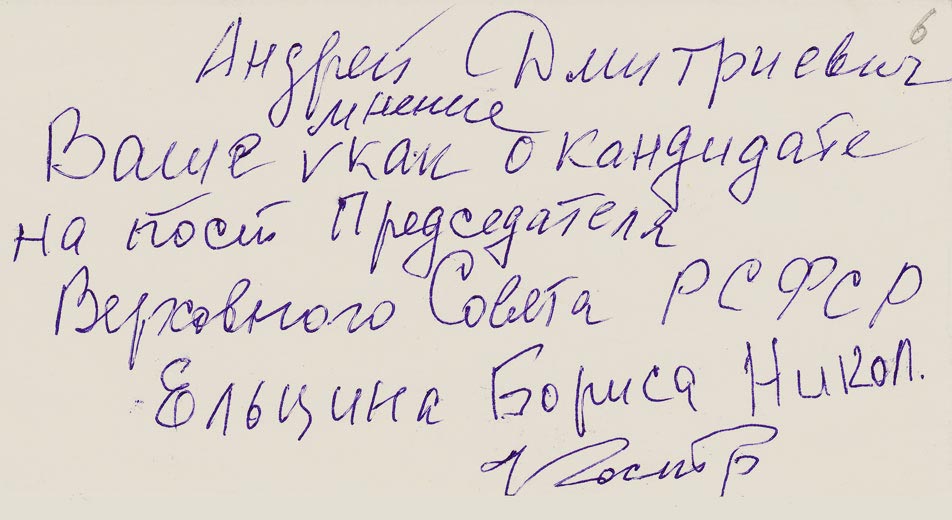 6
Андрей Дмитриевич
мнение
Ваше как о кандидате
на пост Председателя
Верховного Совета РСФСР
Ельцина Бориса Никол.